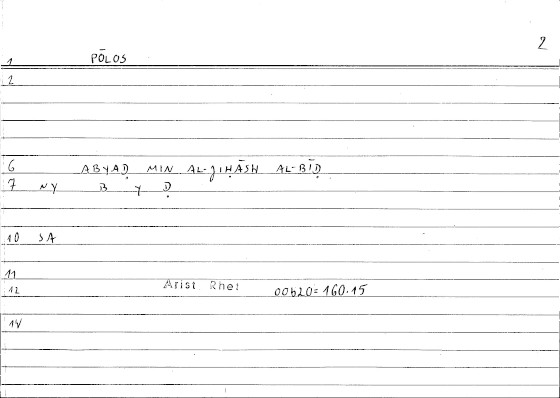 2
1 PŌLOS
2
6 ABYAḌ MIN AL-JIḤĀSH AL-BĪḌ
7 NY B Y Ḍ
10 SA
11
12 Arist Rhet 00620=160.15
14